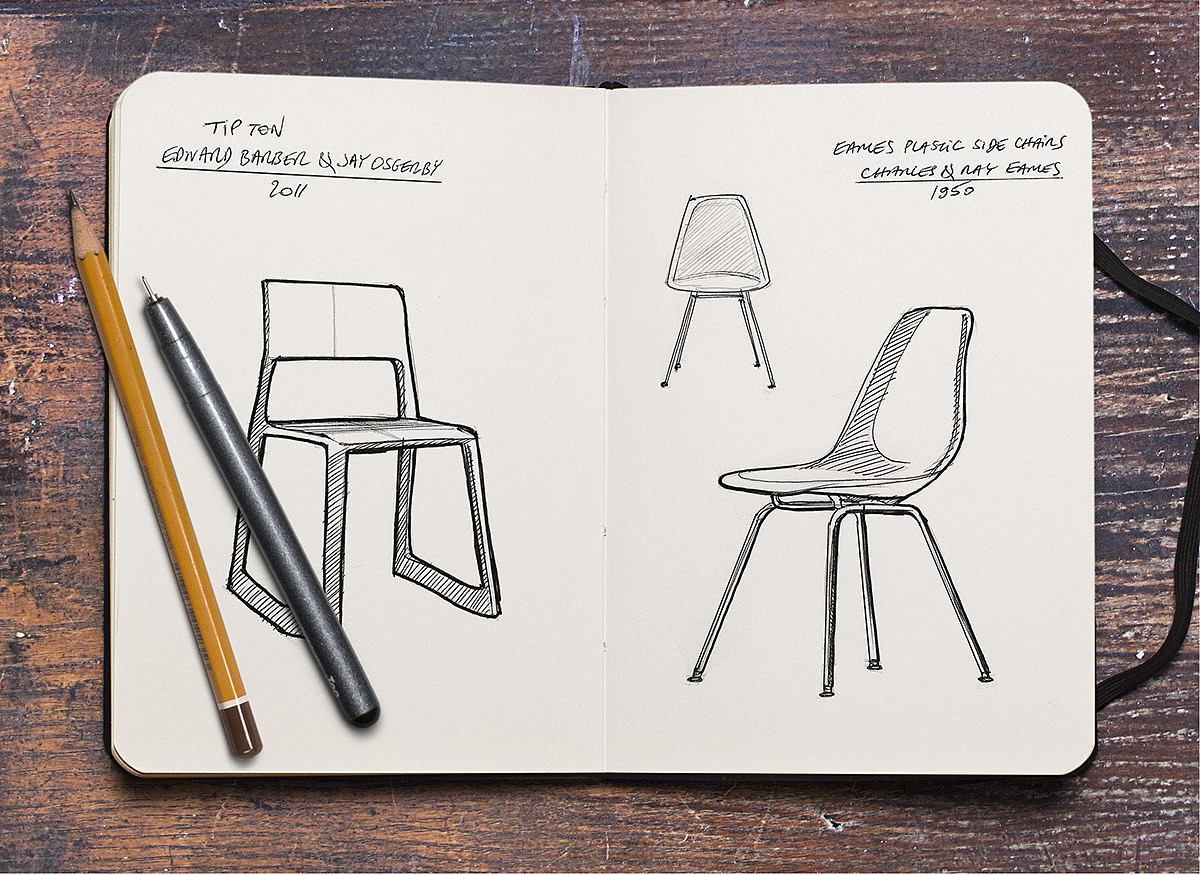 TIP TON
EDWARD BARBER & JAY OSGERBY
2011
EAMES PLASTIC SIDE CHAIRS
CHARLES & RAY EAMES
1950